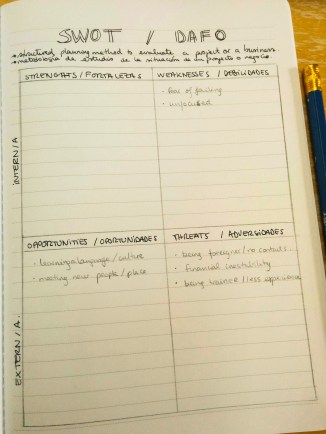 SWOT / DAFO
• structured planning method to evaluate a project or a business.
• metodología de estudio de la situación de un proyecto o negocio.
STRENGTHS / FORTALEZAS
WEAKNESSES / DEBILIDADES
• fear of failing
• unfocused
INTERN/A
OPPORTUNITIES / OPORTUNIDADES
• learning a language / culture
• meeting new people / place
THREATS / ADVERSIDADES
• being foreigner / no contacts
• financial instability
• being trainee / less experience
EXTERN/A.